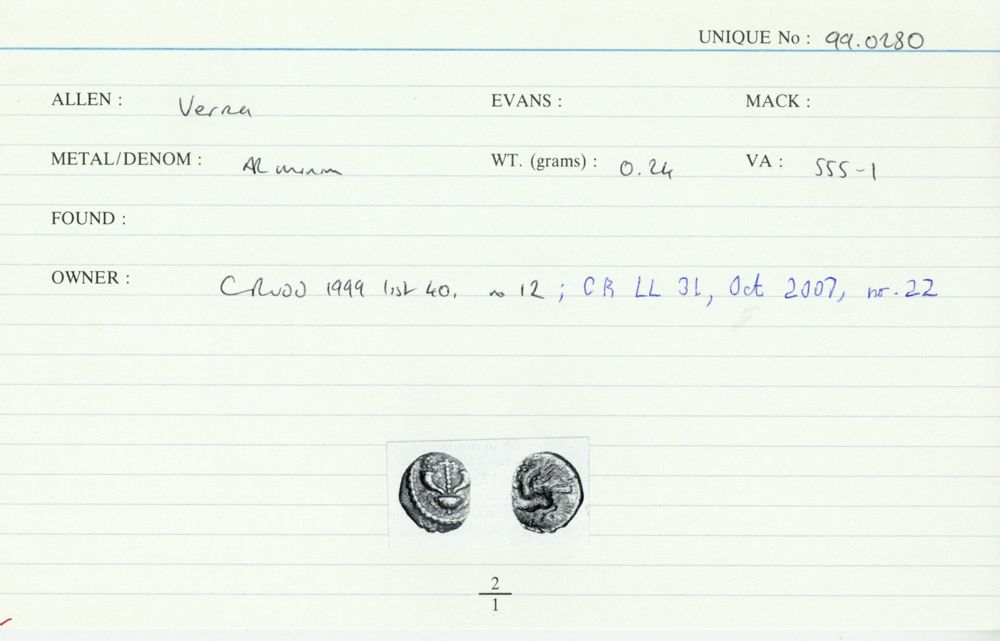 UNIQUE No : 99.0280
ALLEN : Verica EVANS : MACK :
METAL/DENOM : AR minim WT. (grams) : 0.24 VA : 555-1
FOUND :
OWNER : CRUDD 1999 list 40, no 12 ; CR LL 31, Oct 2007, no. 22
2
1